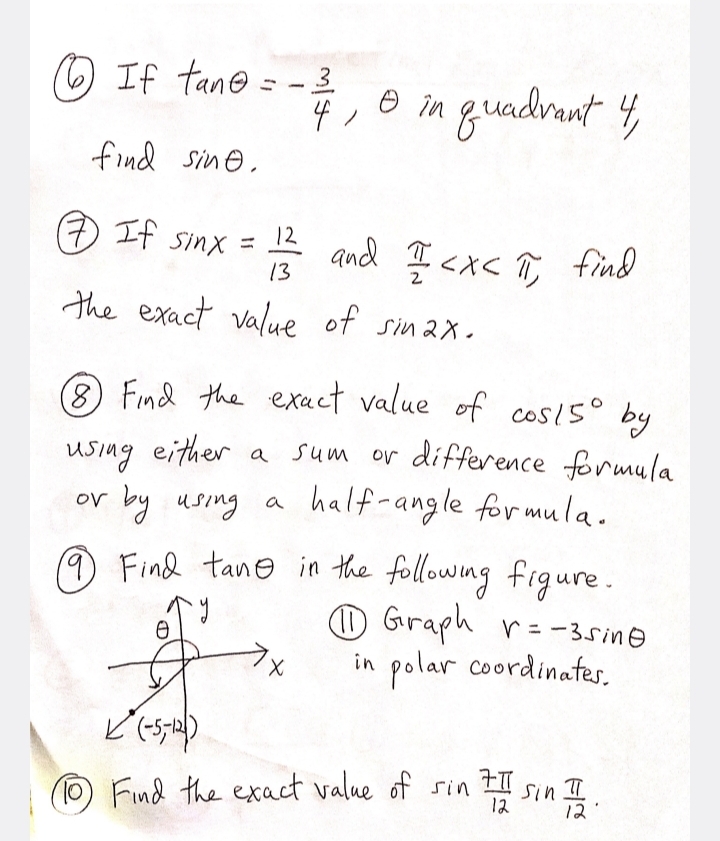 ⑥ If tanθ = -3/4, θ in quadrant 4,
find sinθ.
⑦ If sinx = 12/13 and π/2 <x< π, find
the exact value of sin2x.
⑧ Find the exact value of cos15° by
using either a sum or difference formula
or by using a half-angle formula.
⑨ Find tanθ in the following figure.
θ y
x
(-5,-12)
⑪ Graph r = -3sinθ
in polar coordinates.
⑩ Find the exact value of sin 7π/12 sin π/12.